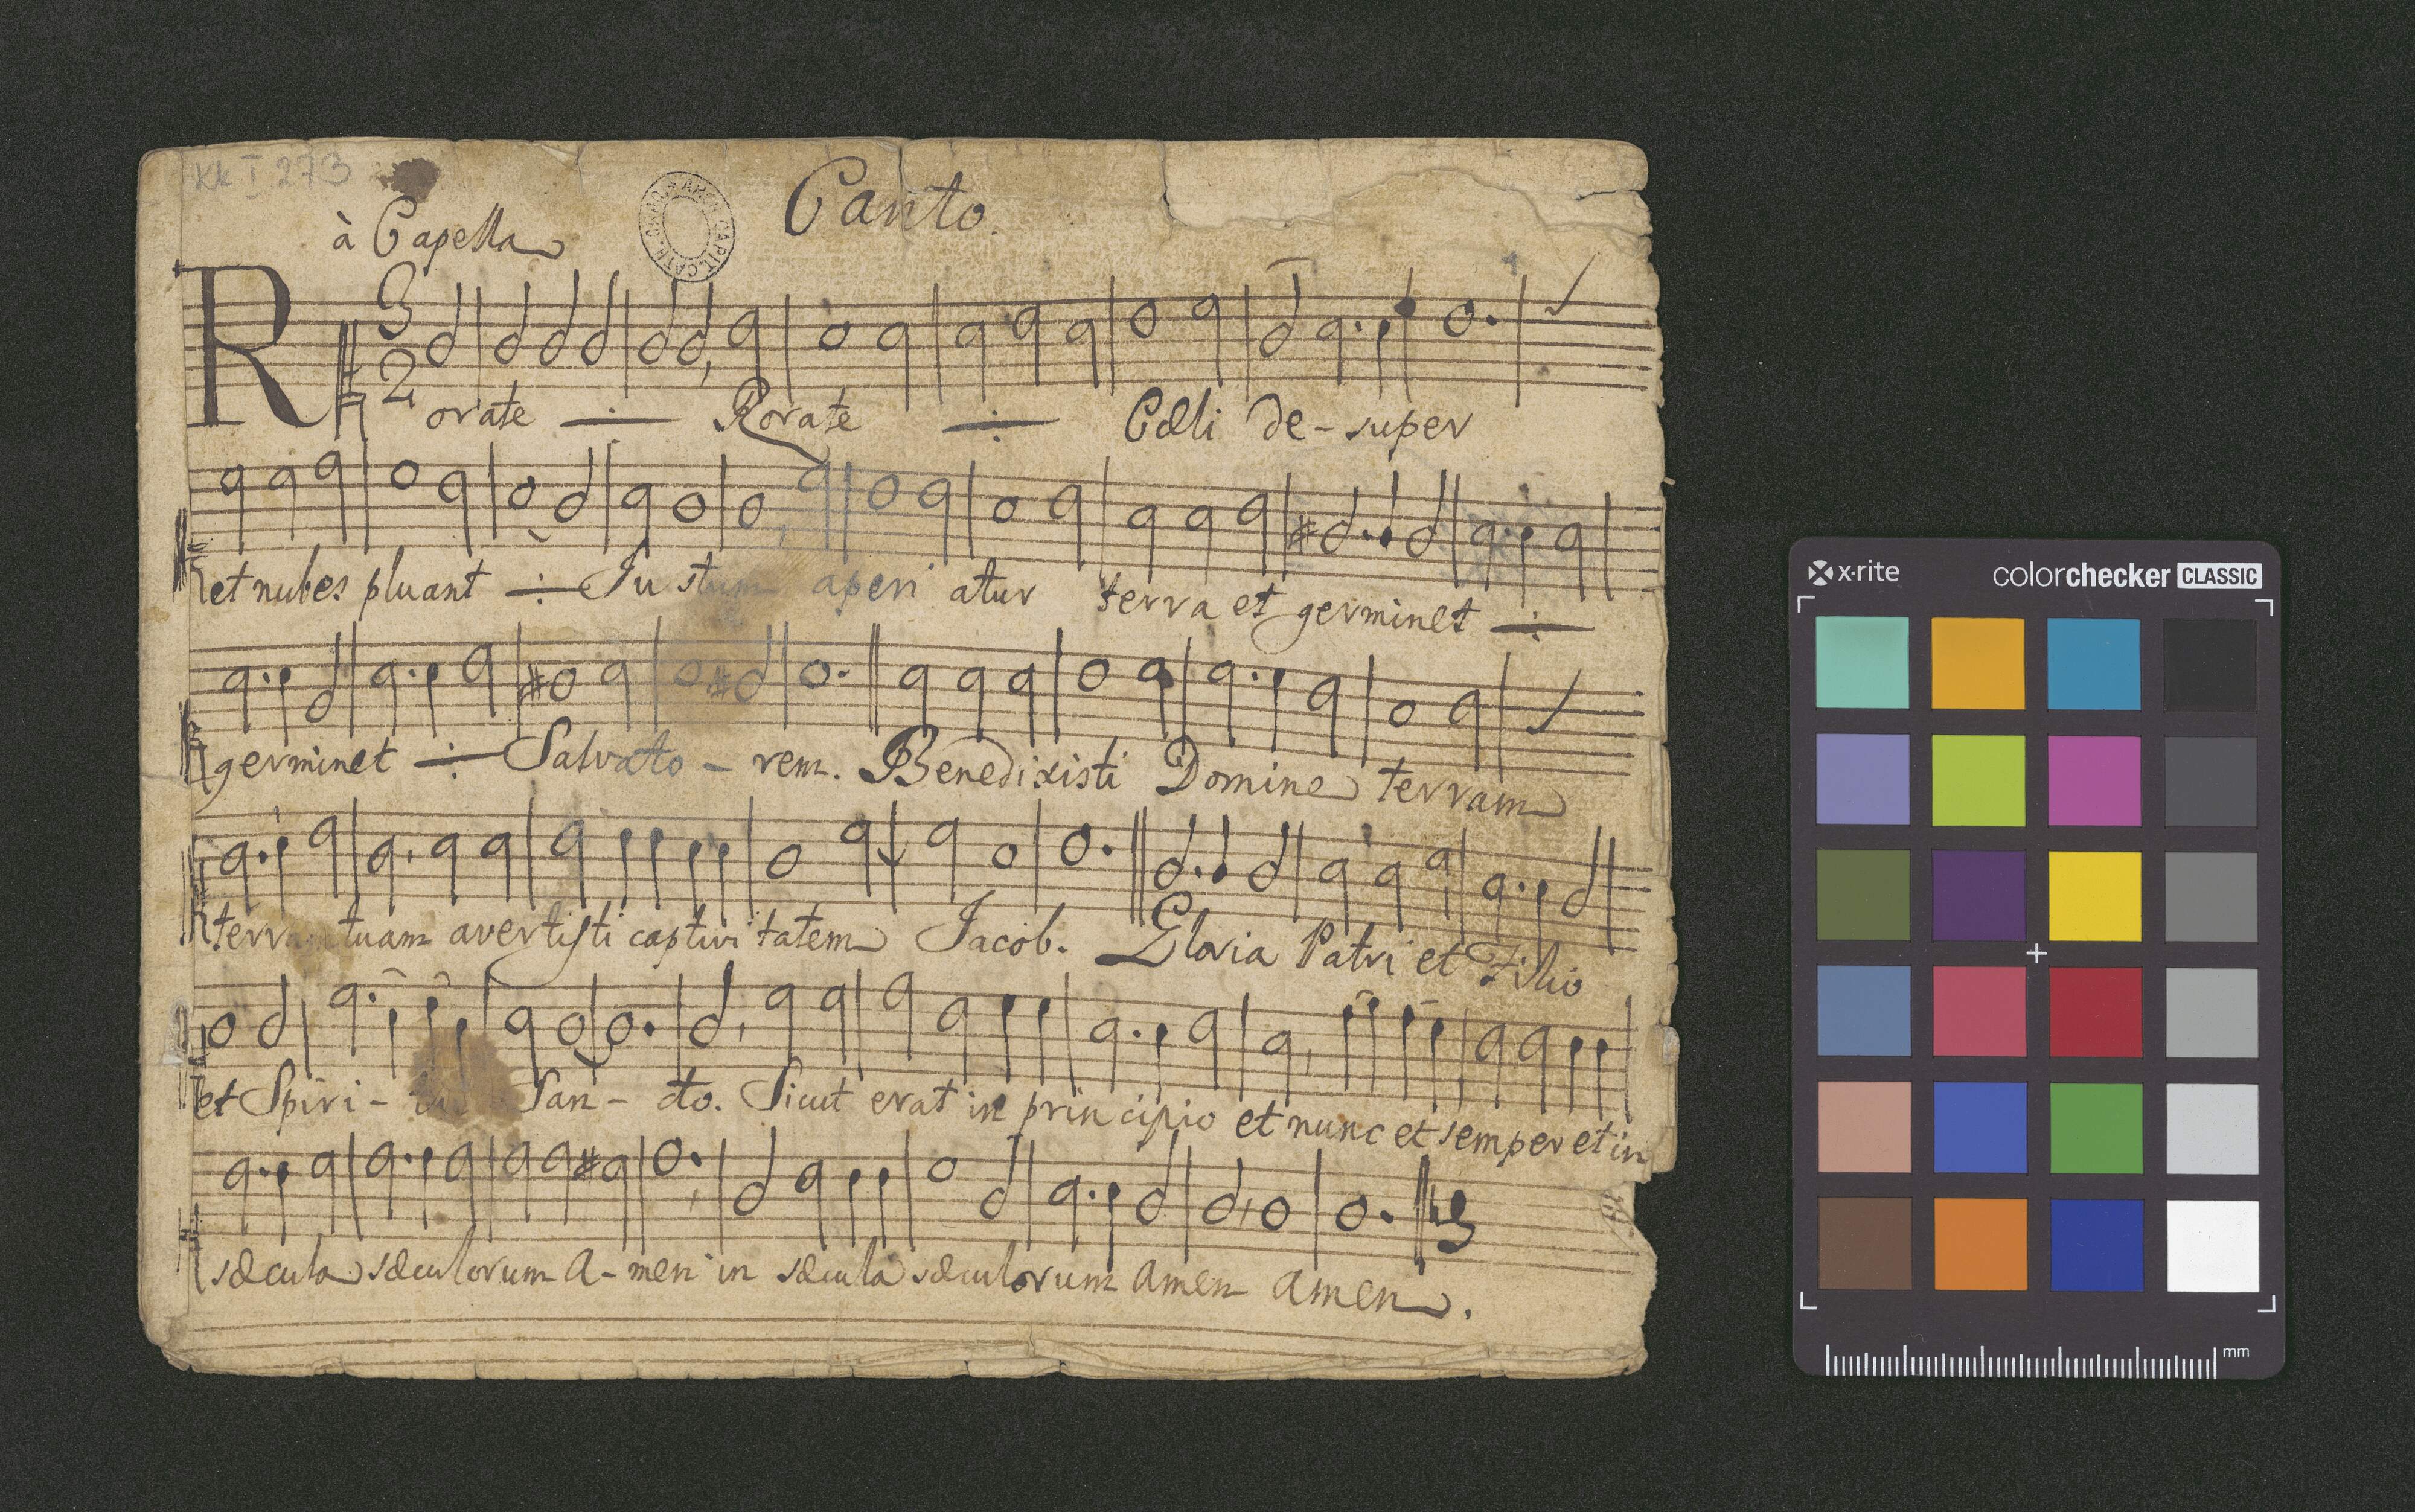 Kk I 273
Canto.
à Capella
3
2
Rorate ÷ Rorate ÷ Cœli de - super
et nubes pluant ÷ Justum aperiatur terra et germinet ÷
germinet ÷ Salvato - rem. Benedixisti Domine terram
terram tuam avertisti captivitatem Jacob. Gloria Patri et Filio
et Spiri - tui San - cto. Sicut erat in principio et nunc et semper et in
sæcula sæculorum A - men in sæcula sæculorum Amen Amen.
x·rite colorchecker CLASSIC
mm